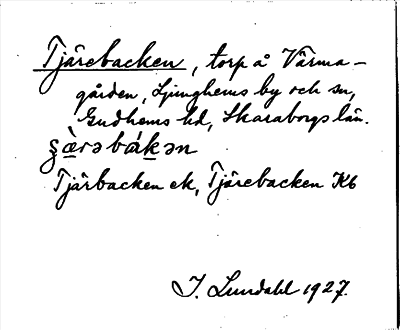 Tjärebacken, torp å Värma-
gården, Ljunghems by och sn,
Gudhems hd, Skaraborgs län.
Tjärbacken ek, Tjärebacken Kb
I. Lundahl 1927.